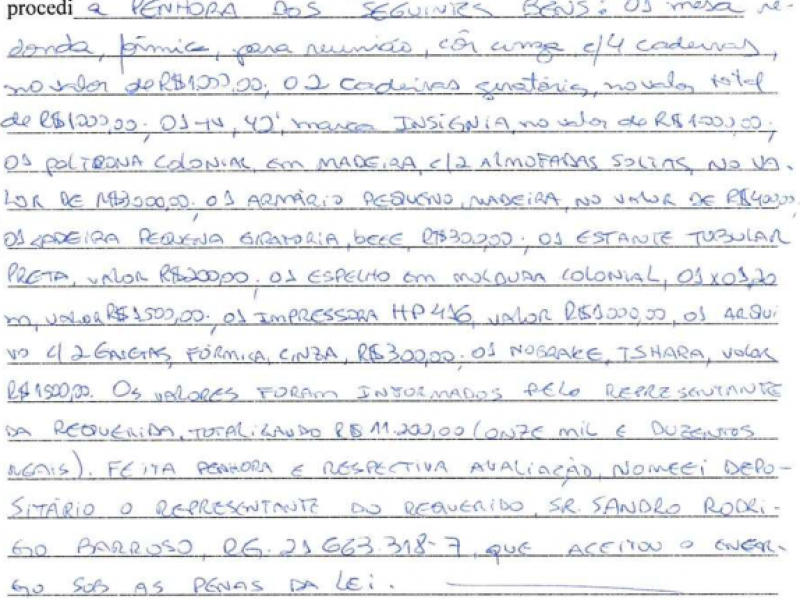 procedi a PENHORA DOS SEGUINTES BENS: 01 mesa re-
donda, fórmica, para reunião, côr cinza, c/4 cadeiras,
no valor de R$1.000,00; 02 cadeiras giratória, no valor total
de R$1.000,00; 01-TV, 42', marca INSIGNIA no valor de R$1.000,00;
01 POLTRONA COLONIAL, em MADEIRA, c/2 ALMOFADAS SOLTAS, NO VA-
LOR DE R$3000,00. 01 ARMÁRIO PEQUENO, MADEIRA, NO VALOR DE R$400,00;
01 CADEIRA PEQUENA GIRATORIA, bege, R$300,00. 01 ESTANTE TUBULAR
PRETA, VALOR R$200,00. 01 ESPELHO em MOLDURA COLONIAL, 01 x 01,20
m, VALOR R$1500,00. 01 IMPRESSORA HP 416, VALOR R$1000,00, 01 ARQUI
VO C/2 GAVETAS, FÓRMICA, CINZA, R$300,00. 01 NOBRAKE, TSHARA, VALOR
R$1500,00. OS VALORES FORAM INFORMADOS PELO REPRESENTANTE
DA REQUERIDA, TOTALIZANDO R$11.200,00 (ONZE MIL E DUZENTOS
REAIS). FEITA PENHORA E RESPECTIVA AVALIAÇÃO, NOMEEI DEPO-
SITÁRIO O REPRESENTANTE DO REQUERIDO, SR. SANDRO RODRI-
GO BARROSO, RG. 21 663.318-7, QUE ACEITOU O ENCAR-
GO SOB AS PENAS DA LEI.